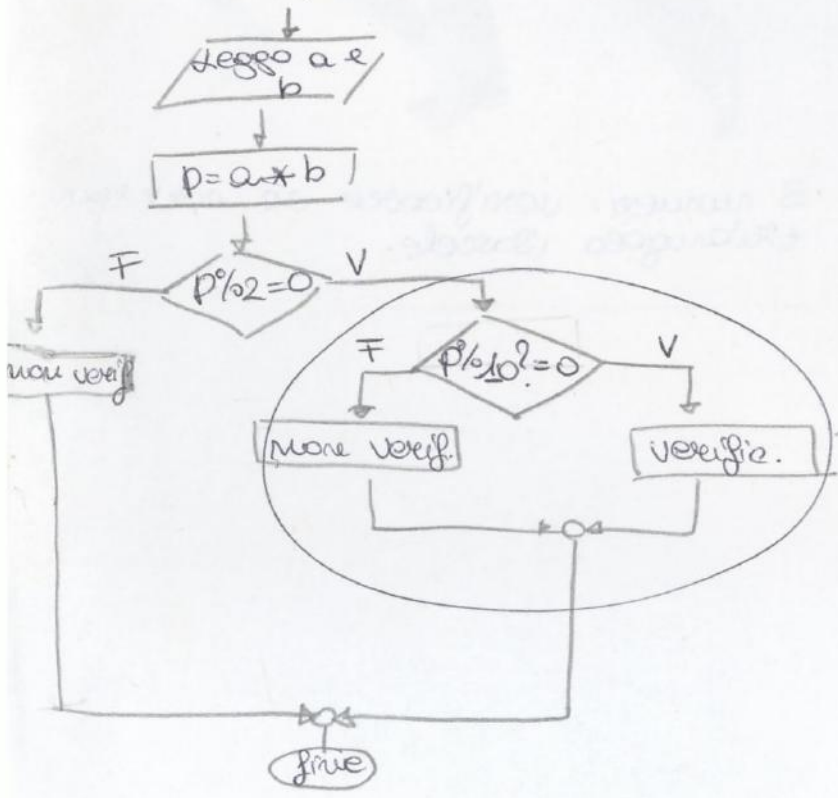 Leggo a e
b
p=a*b
F
V
p%2=0
non verif
F
V
p%10?=0
non verif.
verific.
fine